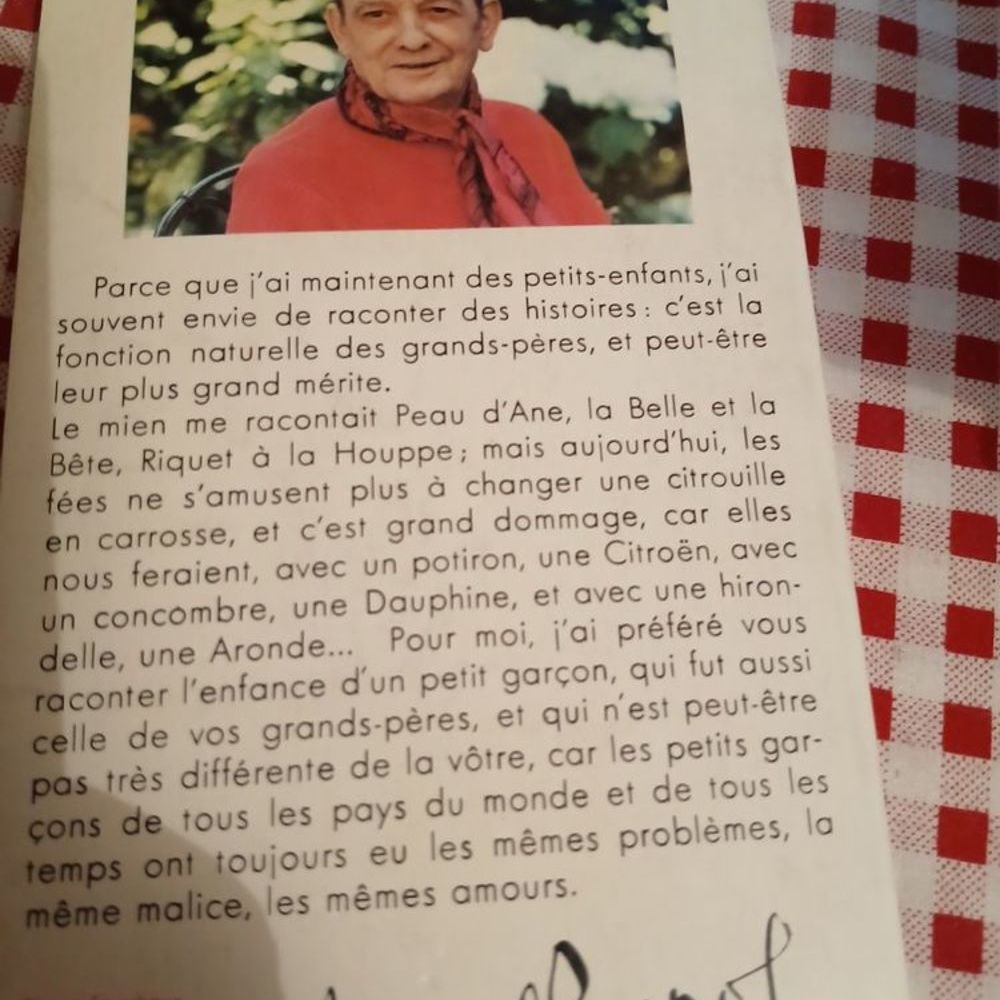 Parce que j'ai maintenant des petits-enfants, j'ai
souvent envie de raconter des histoires : c'est la
fonction naturelle des grands-pères, et peut-être
leur plus grand mérite.
Le mien me racontait Peau d'Ane, la Belle et la
Bête, Riquet à la Houppe ; mais aujourd'hui, les
fées ne s'amusent plus à changer une citrouille
en carrosse, et c'est grand dommage, car elles
nous feraient, avec un potiron, une Citroën, avec
un concombre, une Dauphine, et avec une hiron-
delle, une Aronde... Pour moi, j'ai préféré vous
raconter l'enfance d'un petit garçon, qui fut aussi
celle de vos grands-pères, et qui n'est peut-être
pas très différente de la vôtre, car les petits gar-
çons de tous les pays du monde et de tous les
temps ont toujours eu les mêmes problèmes, la
même malice, les mêmes amours.